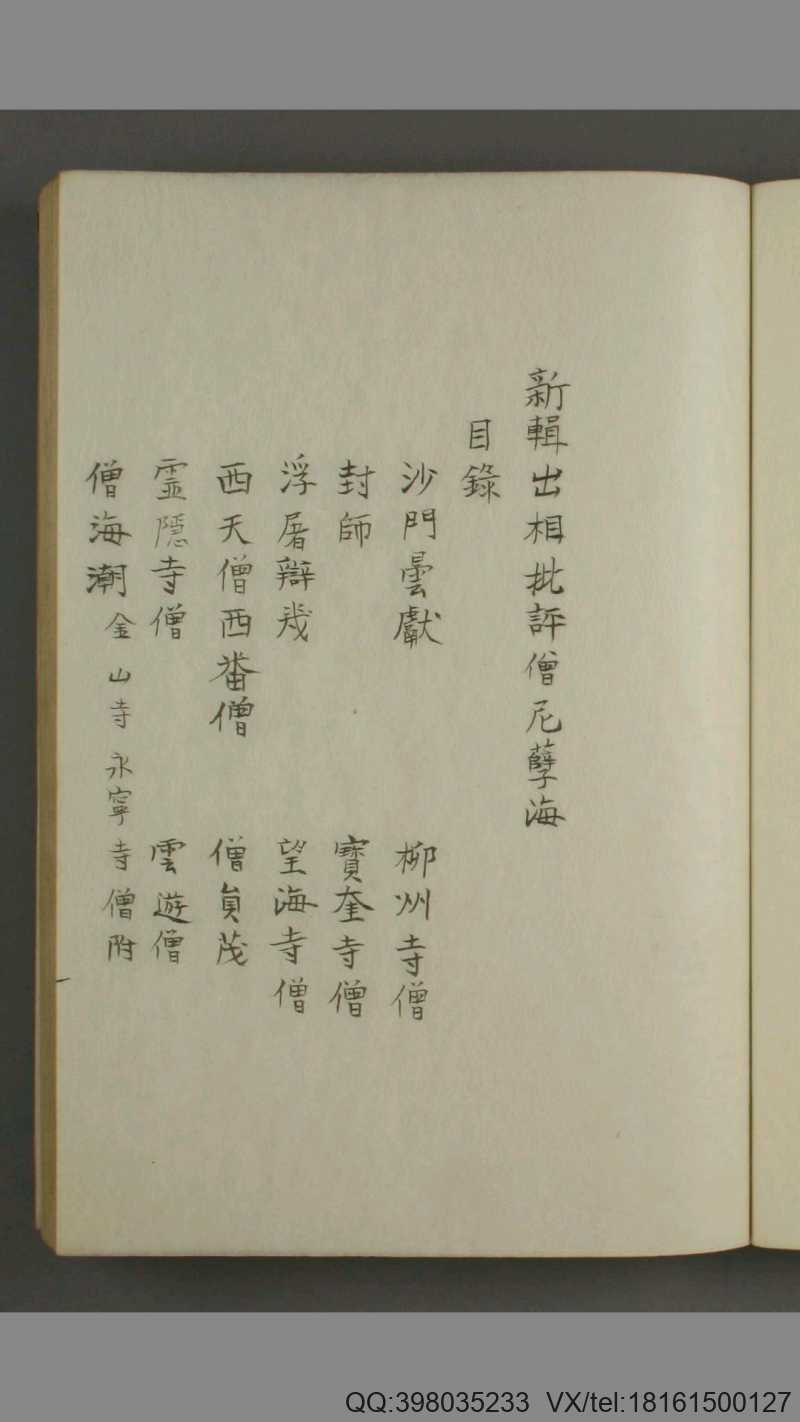 新輯出相批評僧尼孽海
目錄
沙門曇獻 柳州寺僧
封師 寶奎寺僧
浮屠辯幾 望海寺僧
西天僧西番僧 僧員茂
靈隱寺僧 雲遊僧
僧海潮 金山寺永寧寺僧附
QQ:398035233 VX/tel:18161500127